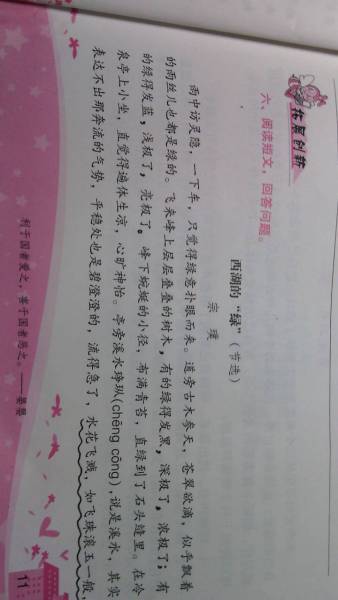 拓展创新
六、阅读短文，回答问题。
西湖的“绿”(节选)
宗 璞
雨中访灵隐，一下车，只觉得绿意扑眼而来。道旁古木参天，苍翠欲滴，似乎飘着
的雨丝儿也都是绿的。飞来峰上层层叠叠的树木，有的绿得发黑，深极了，浓极了；有
的绿得发蓝，浅极了，亮极了。峰下蜿蜒的小径，布满青苔，直绿到了石头缝里。在冷
泉亭上小坐，直觉得遍体生凉，心旷神怡。亭旁溪水琤瑽(chēng cōng)，说是溪水，其实
表达不出那奔流的气势，平稳处也是碧澄澄的，流得急了，水花飞溅，如飞珠滚玉一般，
利于国者爱之，害于国者恶之。——晏婴
11